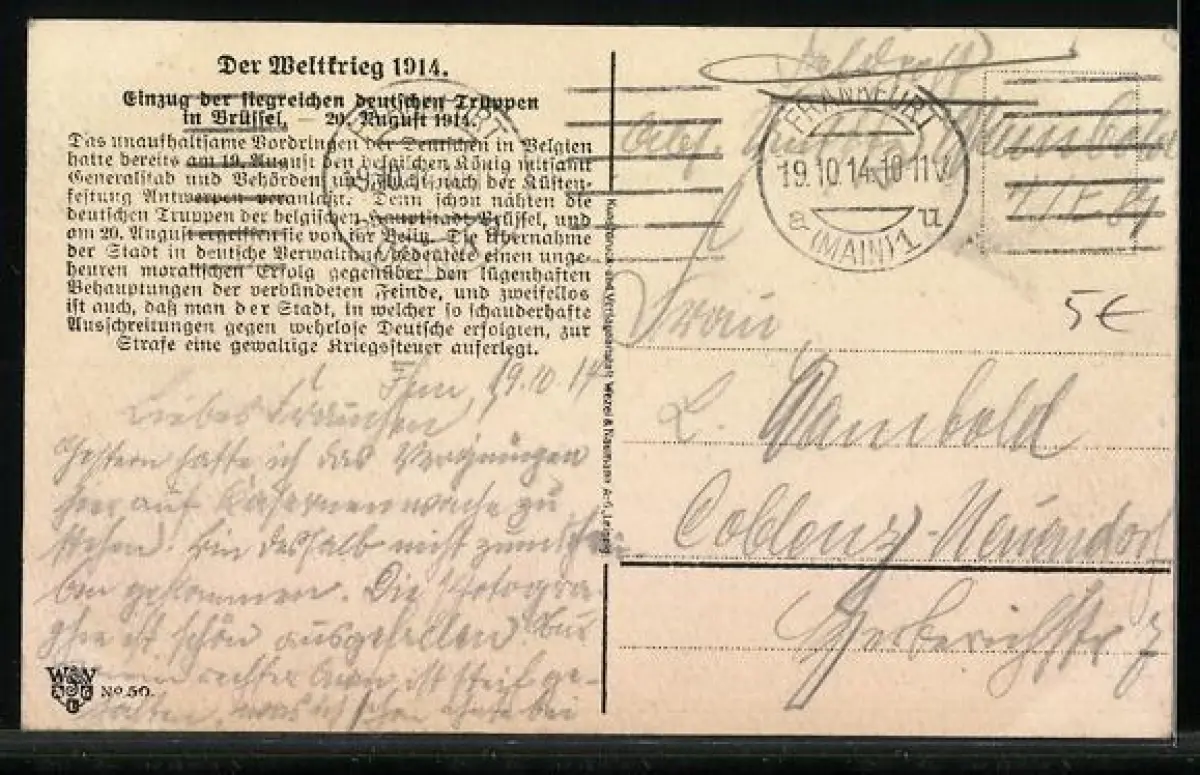 Der Weltkrieg 1914.
Einzug der siegreichen deutschen Truppen
in Brüssel, — 20. August 1914.
Das unaufhaltsame Vordringen der Deutschen in Belgien
hatte bereits am 19. August den belgischen König mitsamt
Generalstab und Behörden zur Flucht nach der Küsten-
festung Antwerpen veranlaßt. Denn schon nähten die
deutschen Truppen der belgischen Hauptstadt Brüssel, und
am 20. August ergriffen sie von ihr Besitz. Die Übernahme
der Stadt in deutsche Verwaltung bedeutete einen unge-
heuren moralischen Erfolg gegenüber den lügenhaften
Behauptungen der verbündeten Feinde, und zweifellos
ist auch, daß man der Stadt, in welcher so schauderhafte
Ausschreitungen gegen wehrlose Deutsche erfolgten, zur
Strafe eine gewaltige Kriegssteuer auferlegt.
Ffm, 19.10.14
Liebes Frauchen
Gestern hatte ich das Vergnügen
hier auf Kasernenwache zu
stehen. Bin deshalb nicht zum Schrei-
ben gekommen. Die Photogra-
phie ist schön ausgefallen. Nur
mein rechter Arm ist steif ge-
halten, was ich schon
WSV
No 50.
Kunstdruck- und Verlagsanstalt Wezel & Naumann A-G., Leipzig
Feldpost
FRANKFURT
19.10.14.10-11V.
a (MAIN) 1 u
5€
Frau
L. Wambold
Coblenz-Neuendorf
7